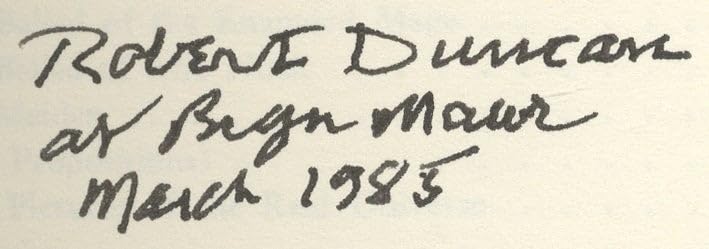 Robert Duncan
at Bryn Mawr
March 1985